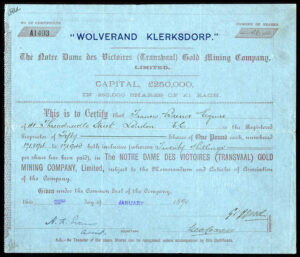 No OF CERTIFICATE
NUMBER OF SHARES
A1403
"WOLVERAND KLERKSDORP."
The Notre Dame des Victoires (Transvaal) Gold Mining Company,
LIMITED.
CAPITAL, £250,000,
IN 250,000 SHARES OF £1 EACH.
This is to Certify that Francis Esquire
of Threadneedle Street London E.C. is the Registered
Proprietor of Fifty Shares of One Pound each, numbered
to both inclusive whereon Twenty Shillings
per share has been paid, in The NOTRE DAME DES VICTOIRES (TRANSVAAL) GOLD
MINING COMPANY, Limited, subject to the Memorandum and Articles of Association
of the Company.
Given under the Common Seal of the Company,
this JANUARY 18
N.B.—No Transfer of the above Shares can be recognised unless accompanied by this Certificate.